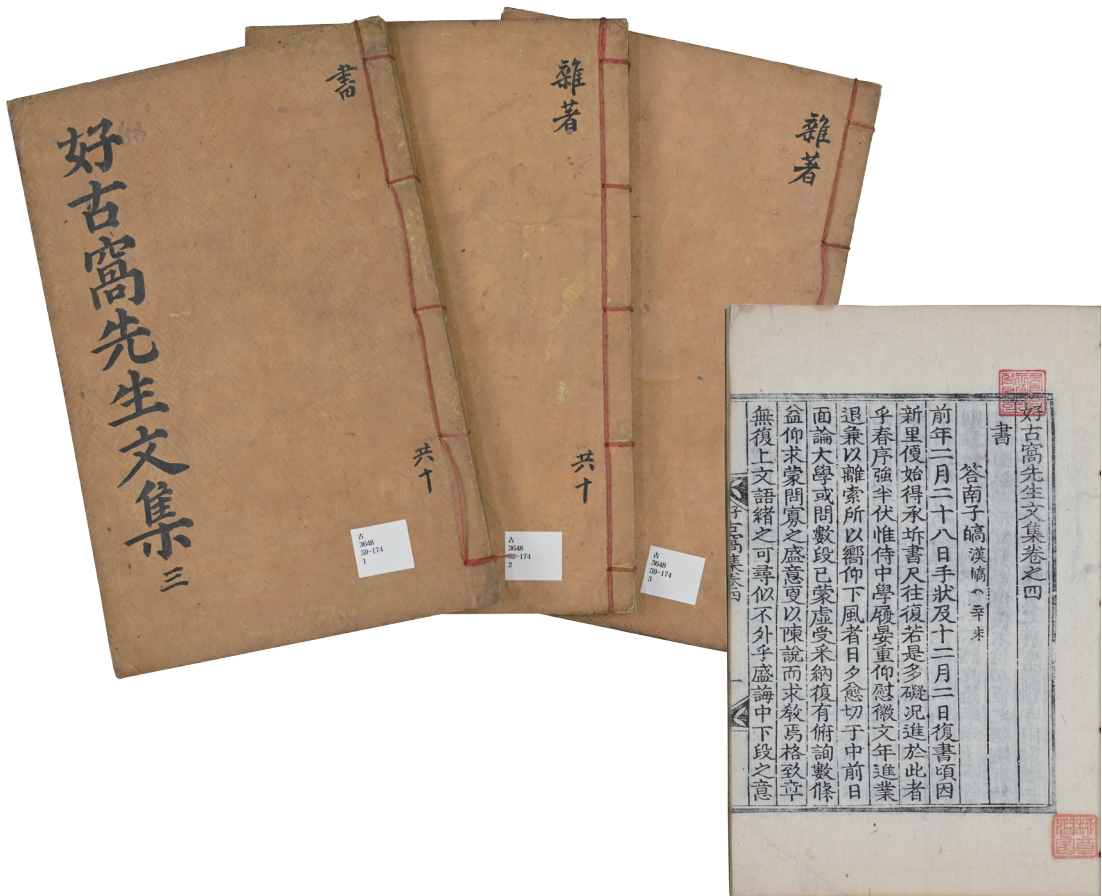 書
好古窩先生文集 三
共十
古
3648
59-174
1
雜著
共十
古
3648
59-174
2
雜著
古
3648
59-174
3
好古窩先生文集卷之四
書
答南子皜 漢皜 ○ 辛未
前年二月二十八日手狀及十二月二日復書頃因
新里便始得承拆書尺往復若是多礙况進於此者
乎春序強半伏惟侍中學履晏重仰慰徽文年進業
退兼以離索所以嚮仰下風者日夕愈切于中前日
面論大學或問數段已蒙虛受采納復有俯詢數條
益仰求蒙問寡之盛意更以陳說而求教焉格致章
無復上文語緖之可尋似不外乎盛誨中下段之意
好古窩集卷四
一